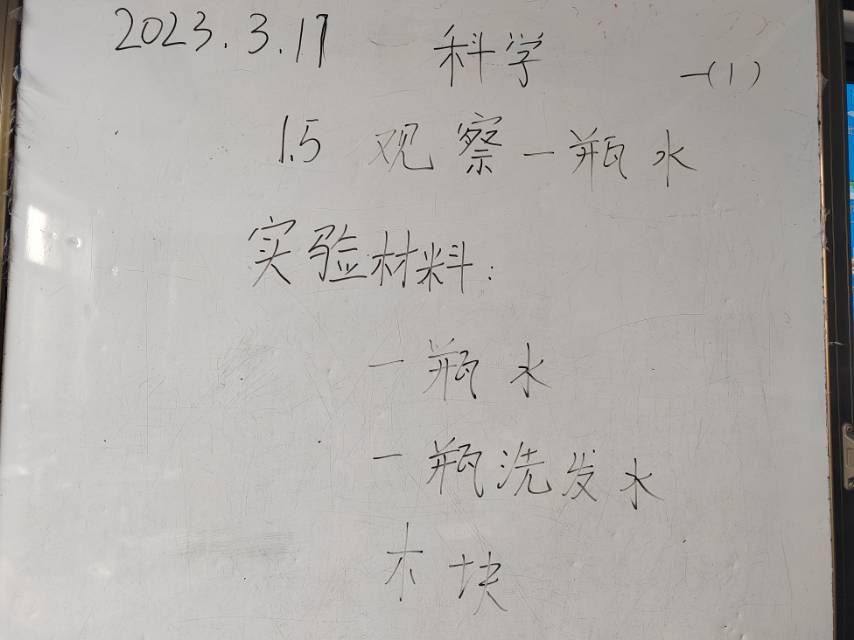 2023.3.17 科学 一(1)
1.5 观察一瓶水
实验材料:
一瓶水
一瓶洗发水
木块